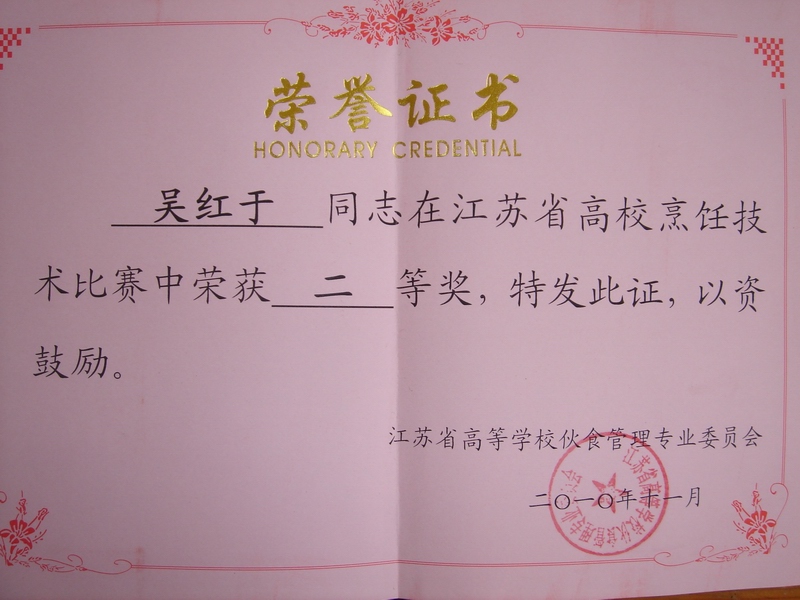 荣誉证书
HONORARY CREDENTIAL
吴红于 同志在江苏省高校烹饪技
术比赛中荣获 二 等奖，特发此证，以资
鼓励。
江苏省高等学校伙食管理专业委员会
二〇一〇年十一月
江苏省高等学校伙食管理专业委员会